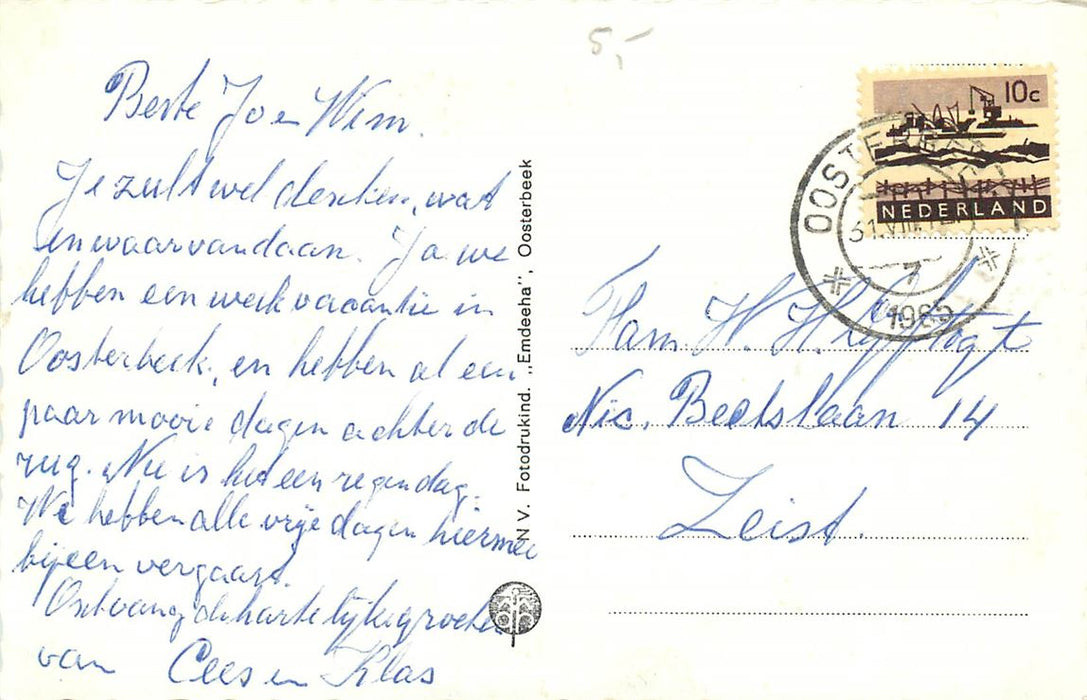 5,-
Beste Jo en Wim.
Je zult wel denken, wat
en waar vandaan. Ja we
hebben een week vacantie in
Oosterbeek, en hebben al een
paar mooie dagen achter de
rug. Nu is het een regendag.
We hebben alle vrije dagen hiermee
bijeen vergaard.
Ontvang de hartelijke groeten
van Cees en Klas
N V. Fotodrukind. „Emdeeha", Oosterbeek
10c
NEDERLAND
OOSTERBEEK
31.VIII.
7
1965
Fam. W. H.
Nic. Beetslaan 14
Zeist.